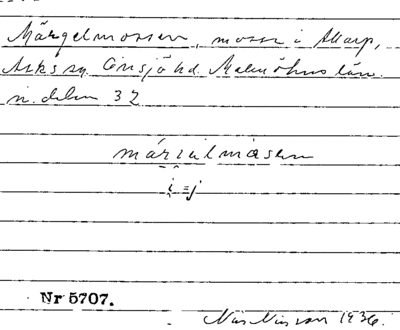 Märgelmossen, mosse i Allarp,
Asks sn. Onsjö hd. Malmöhus län.
n. delen 32
märiulmåsen
i = j
Nr 5707.
Nils Nilsson 1936.